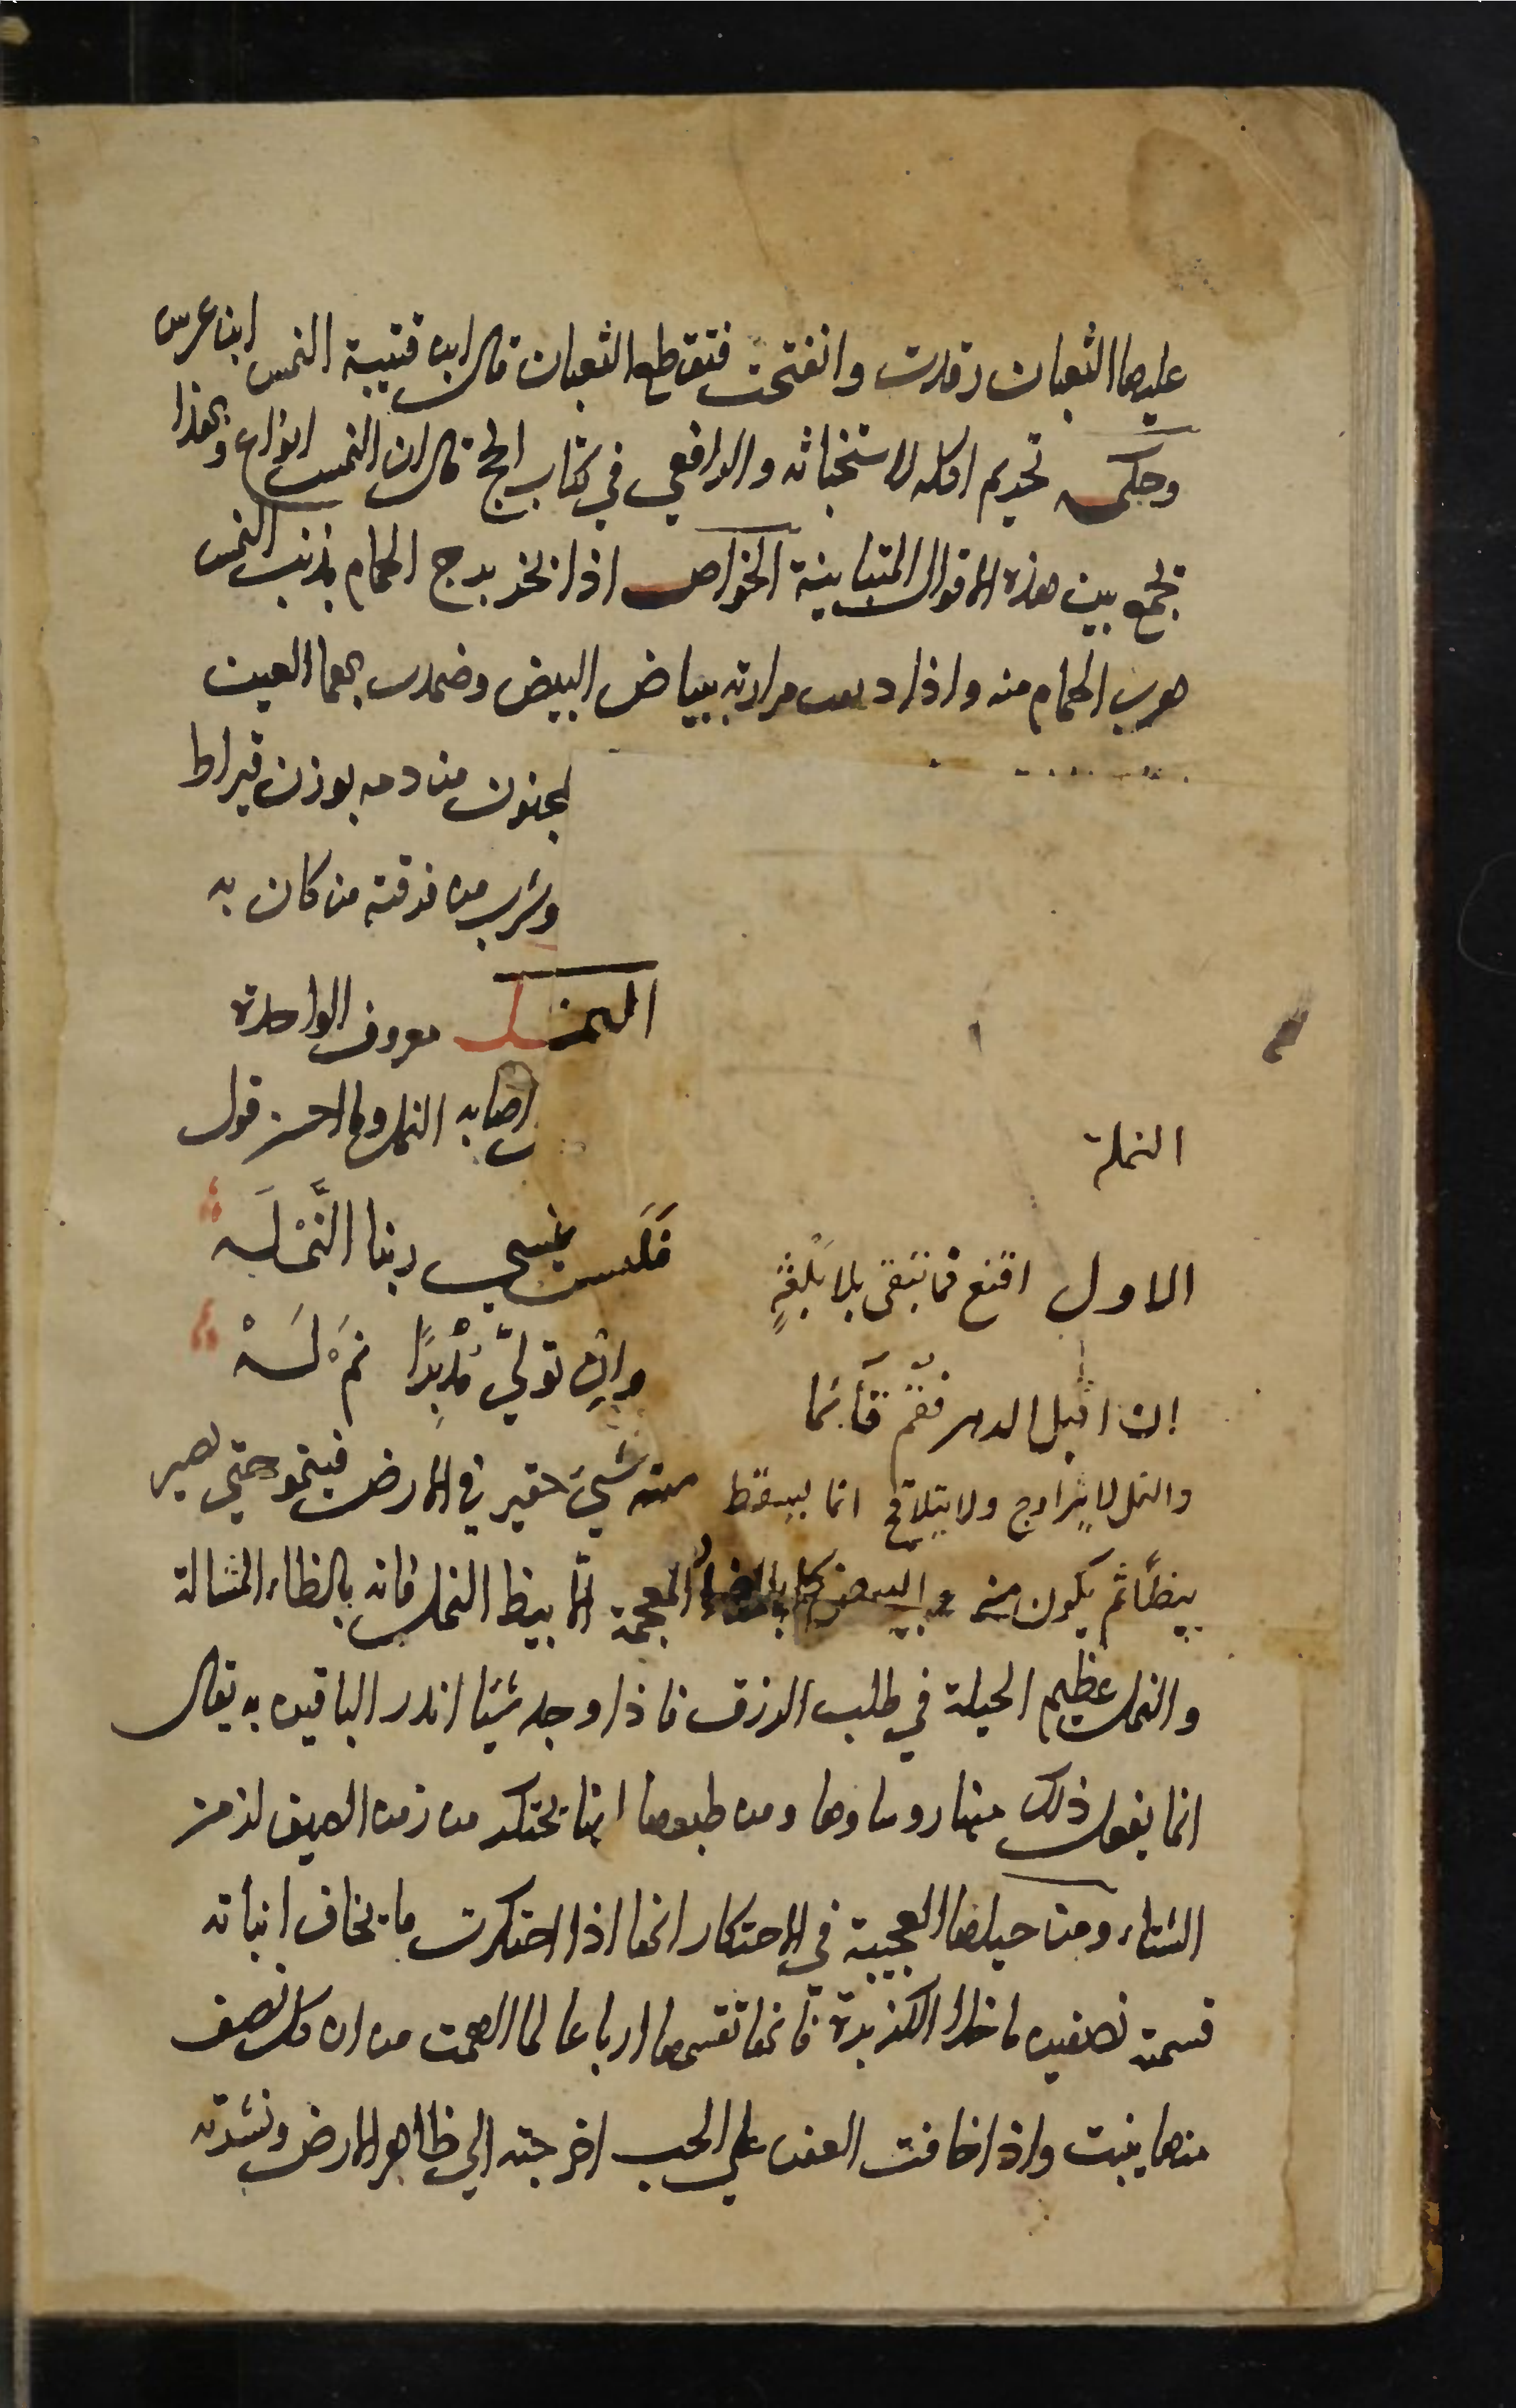 عليها الثعبان زفرت وانفتحت فتقطع الثعبان قال ابن قتيبة النمس ابن عرس
وحكمه تحريم اكله لاستخباثه والرافعي في كتاب الحج قال ان النمس انواع وبهذا
نجمع بين هذه الاقوال المتباينة الخواص اذا بخر برج الحمام بذنب النمس
هرب الحمام منه واذا مرارته ببياض البيض وضمدت بهما العين
لمجنون من دمه بوزن قيراط
وشرب من مرقته من كان به
النمل معروف الواحدة
النملة
اصابه النمل وما احسن قول
الاول اقنع فما تبقى بلا بُلْغَةٍ فَلَيس ينسى ربنا النَّمْلَه
ان اقبل الدهر فقُم قَائما وان تولى مُدْبِرًا نَمْ لَهْ
والنمل لا يتزاوج ولا يتلاقح انما يسقط منه شيء حقير في الارض فينمو حتى يصير
بيظًا ثم يكون منه والبيض كله بالضاد المعجمة الا بيظ النمل فانه بالظاء المشالة
والنمل عظيم الحيلة في طلب الرزق فاذا وجد شيئا انذر الباقين به يقال
انما يفعل ذلك منها روساوها ومن طبعها انها تحتكر من زمن الصيف لزمن
الشتاء ومن حيلها العجيبة في الاحتكار انها اذا احتكرت ما يخاف انباته
قسمته نصفين ما خلا الكزبرة فانها تقسمها ارباعا لما الهمت من ان كل نصف
منها ينبت واذا خافت العفن على الحب اخرجته الى ظاهر الارض ونشرته